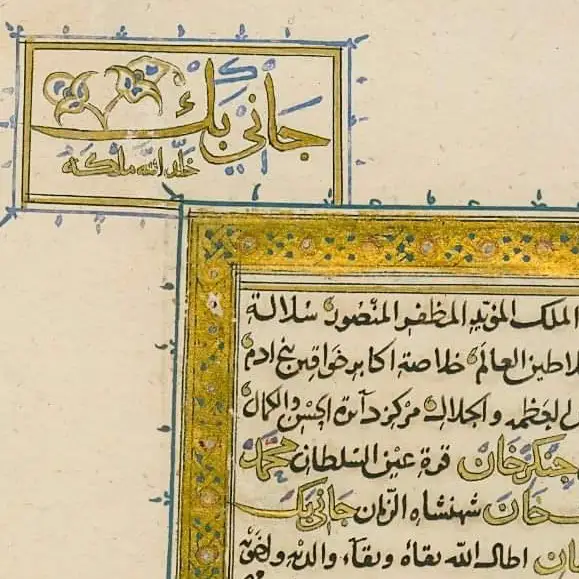 جاني بك
خلد الله ملكه
الملك المؤيد المظفر المنصور سلالة
العالم خلاصة اكابر خواقين بني ادم
و الجلال مركز دائرة الحسن والكمال
جنكزخان قرة عين السلطان محمد
خان شهنشاه الزمان جاني بك
اطال الله بقاه وبقاء والديه